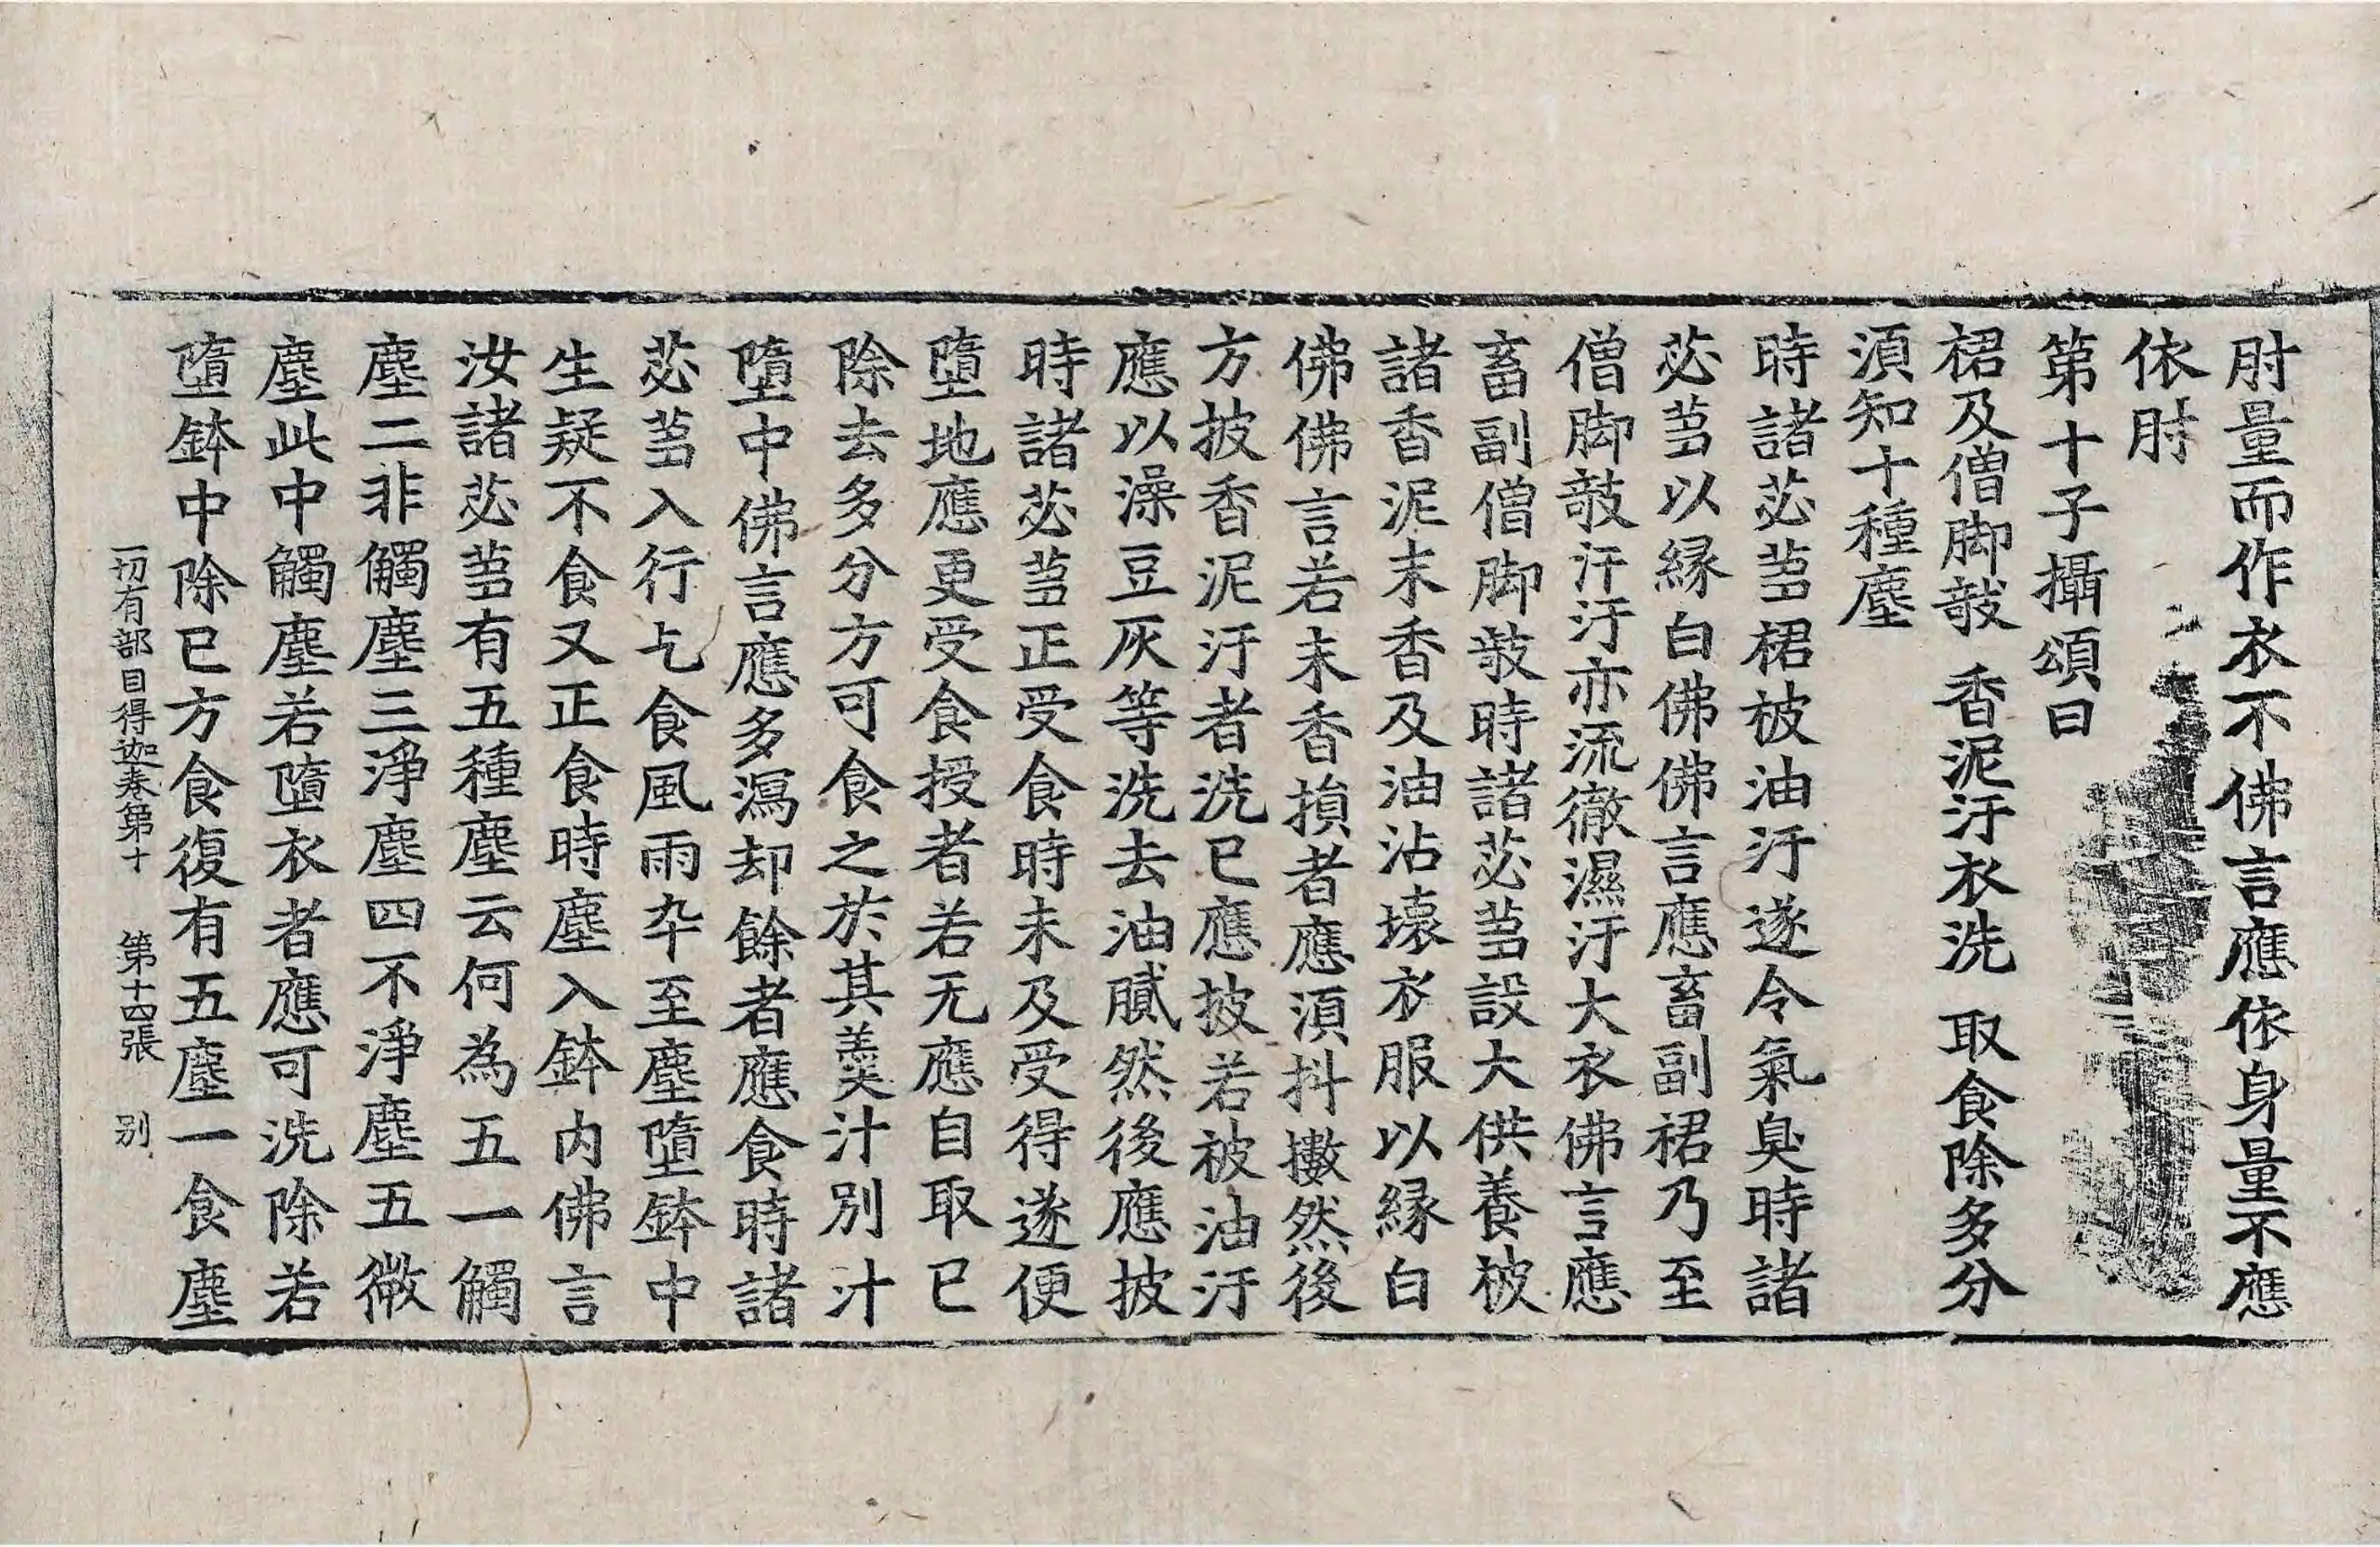 肘量而作衣不佛言應依身量不應
依肘
第十子攝頌曰
裙及僧脚敧　香泥汙衣洗　取食除多分
湏知十種塵
時諸苾蒭裙被油汙遂令氣臭時諸
苾蒭以縁白佛佛言應畜副裙乃至
僧脚敧汗汙亦流徹濕汙大衣佛言應
畜副僧脚敧時諸苾蒭設大供養被
諸香泥末香及油沾壞衣服以縁白
佛佛言若末香損者應湏抖擻然後
方披香泥汙者洗已應披若被油汙
應以澡豆灰等洗去油膩然後應披
時諸苾蒭正受食時未及受得遂便
墮地應更受食授者若无應自取已
除去多分方可食之於其羹汁別汁
墮中佛言應多瀉却餘者應食時諸
苾蒭入行乞食風雨卒至塵墮鉢中
生疑不食又正食時塵入鉢内佛言
汝諸苾蒭有五種塵云何為五一觸
塵二非觸塵三淨塵四不淨塵五微
塵此中觸塵若墮衣者應可洗除若
墮鉢中除已方食復有五塵一食塵
一切有部目得迦卷第十　第十四張　别